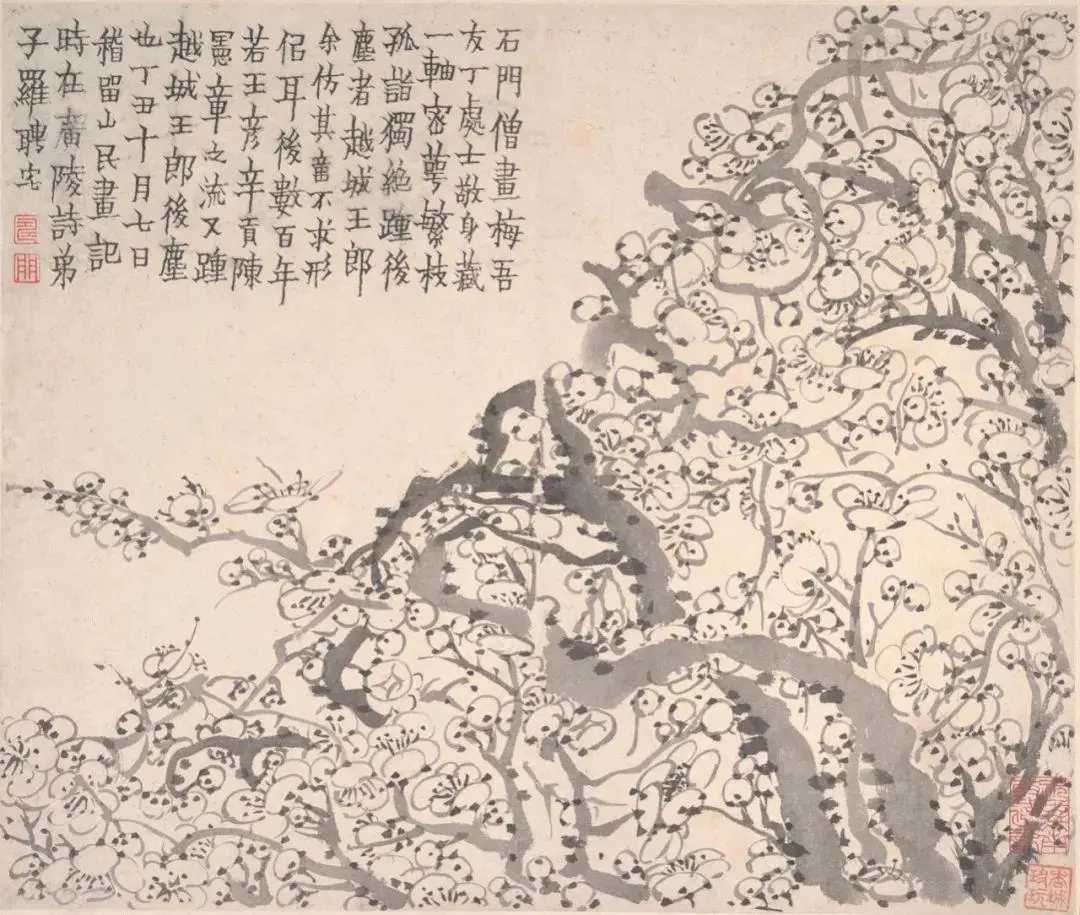 石門僧畫梅吾
友丁處士敬身藏
一軸密萼繁枝
孤詣獨絶踵後
塵者越城王郎
余仿其意不求形
侣耳後數百年
若王彦辛貢陳
憲章之流又踵
越城王郎後塵
也丁丑十月七日
稽留山民畫記
時在廣陵詩弟
子羅聘宅